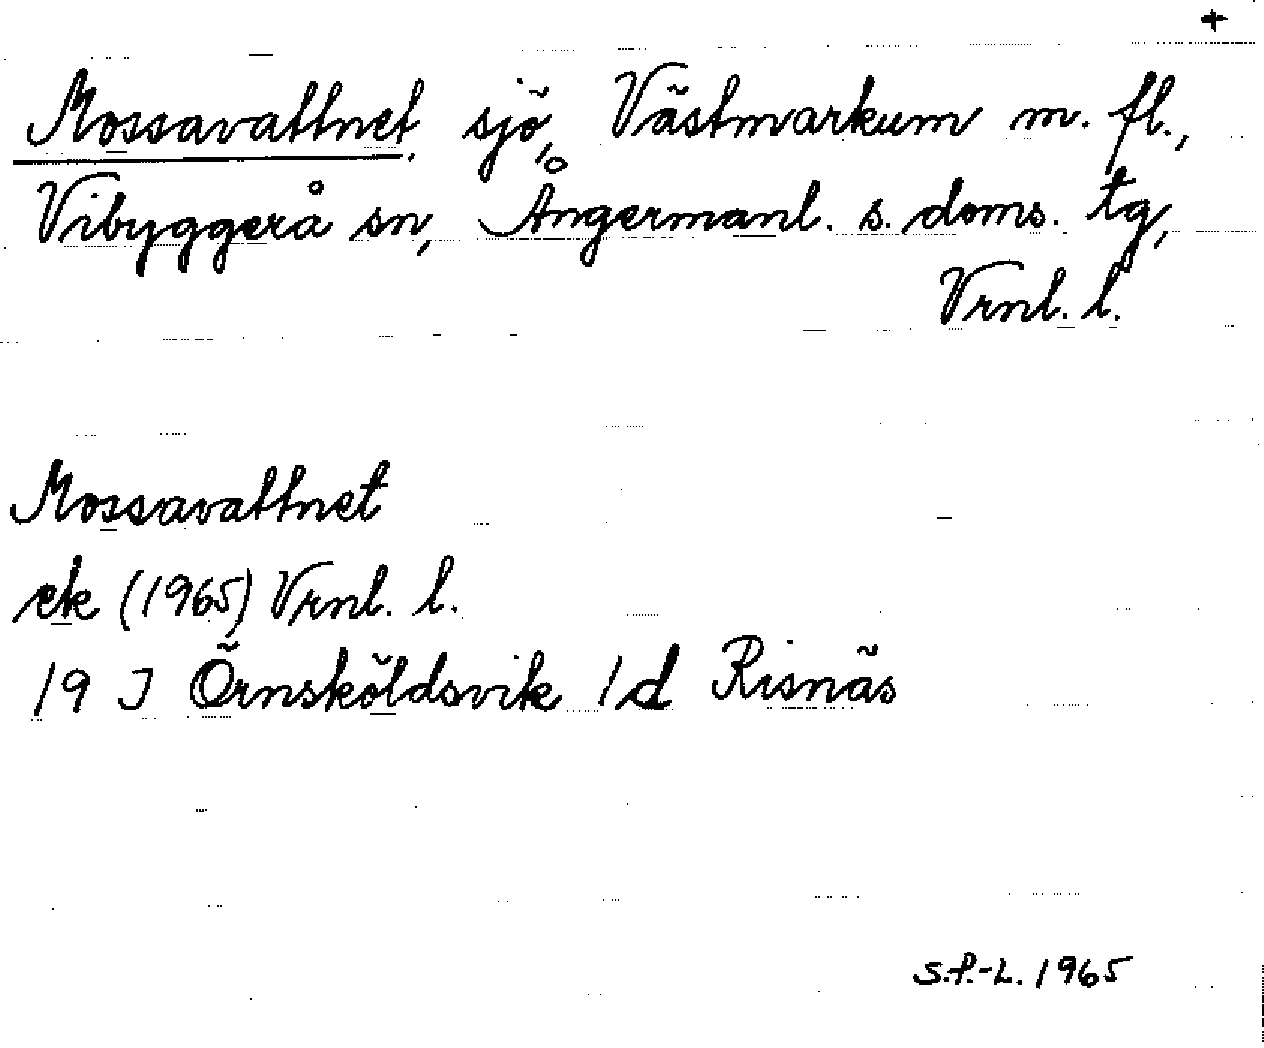 +
Mossavattnet, sjö, Västmarkum m. fl.,
Vibyggerå sn, Ångermanl. s. doms. tg,
Vrnl. l.
Mossavattnet
ek (1965) Vrnl. l.
19 J Örnsköldsvik 1d Risnäs
S.f.-L. 1965